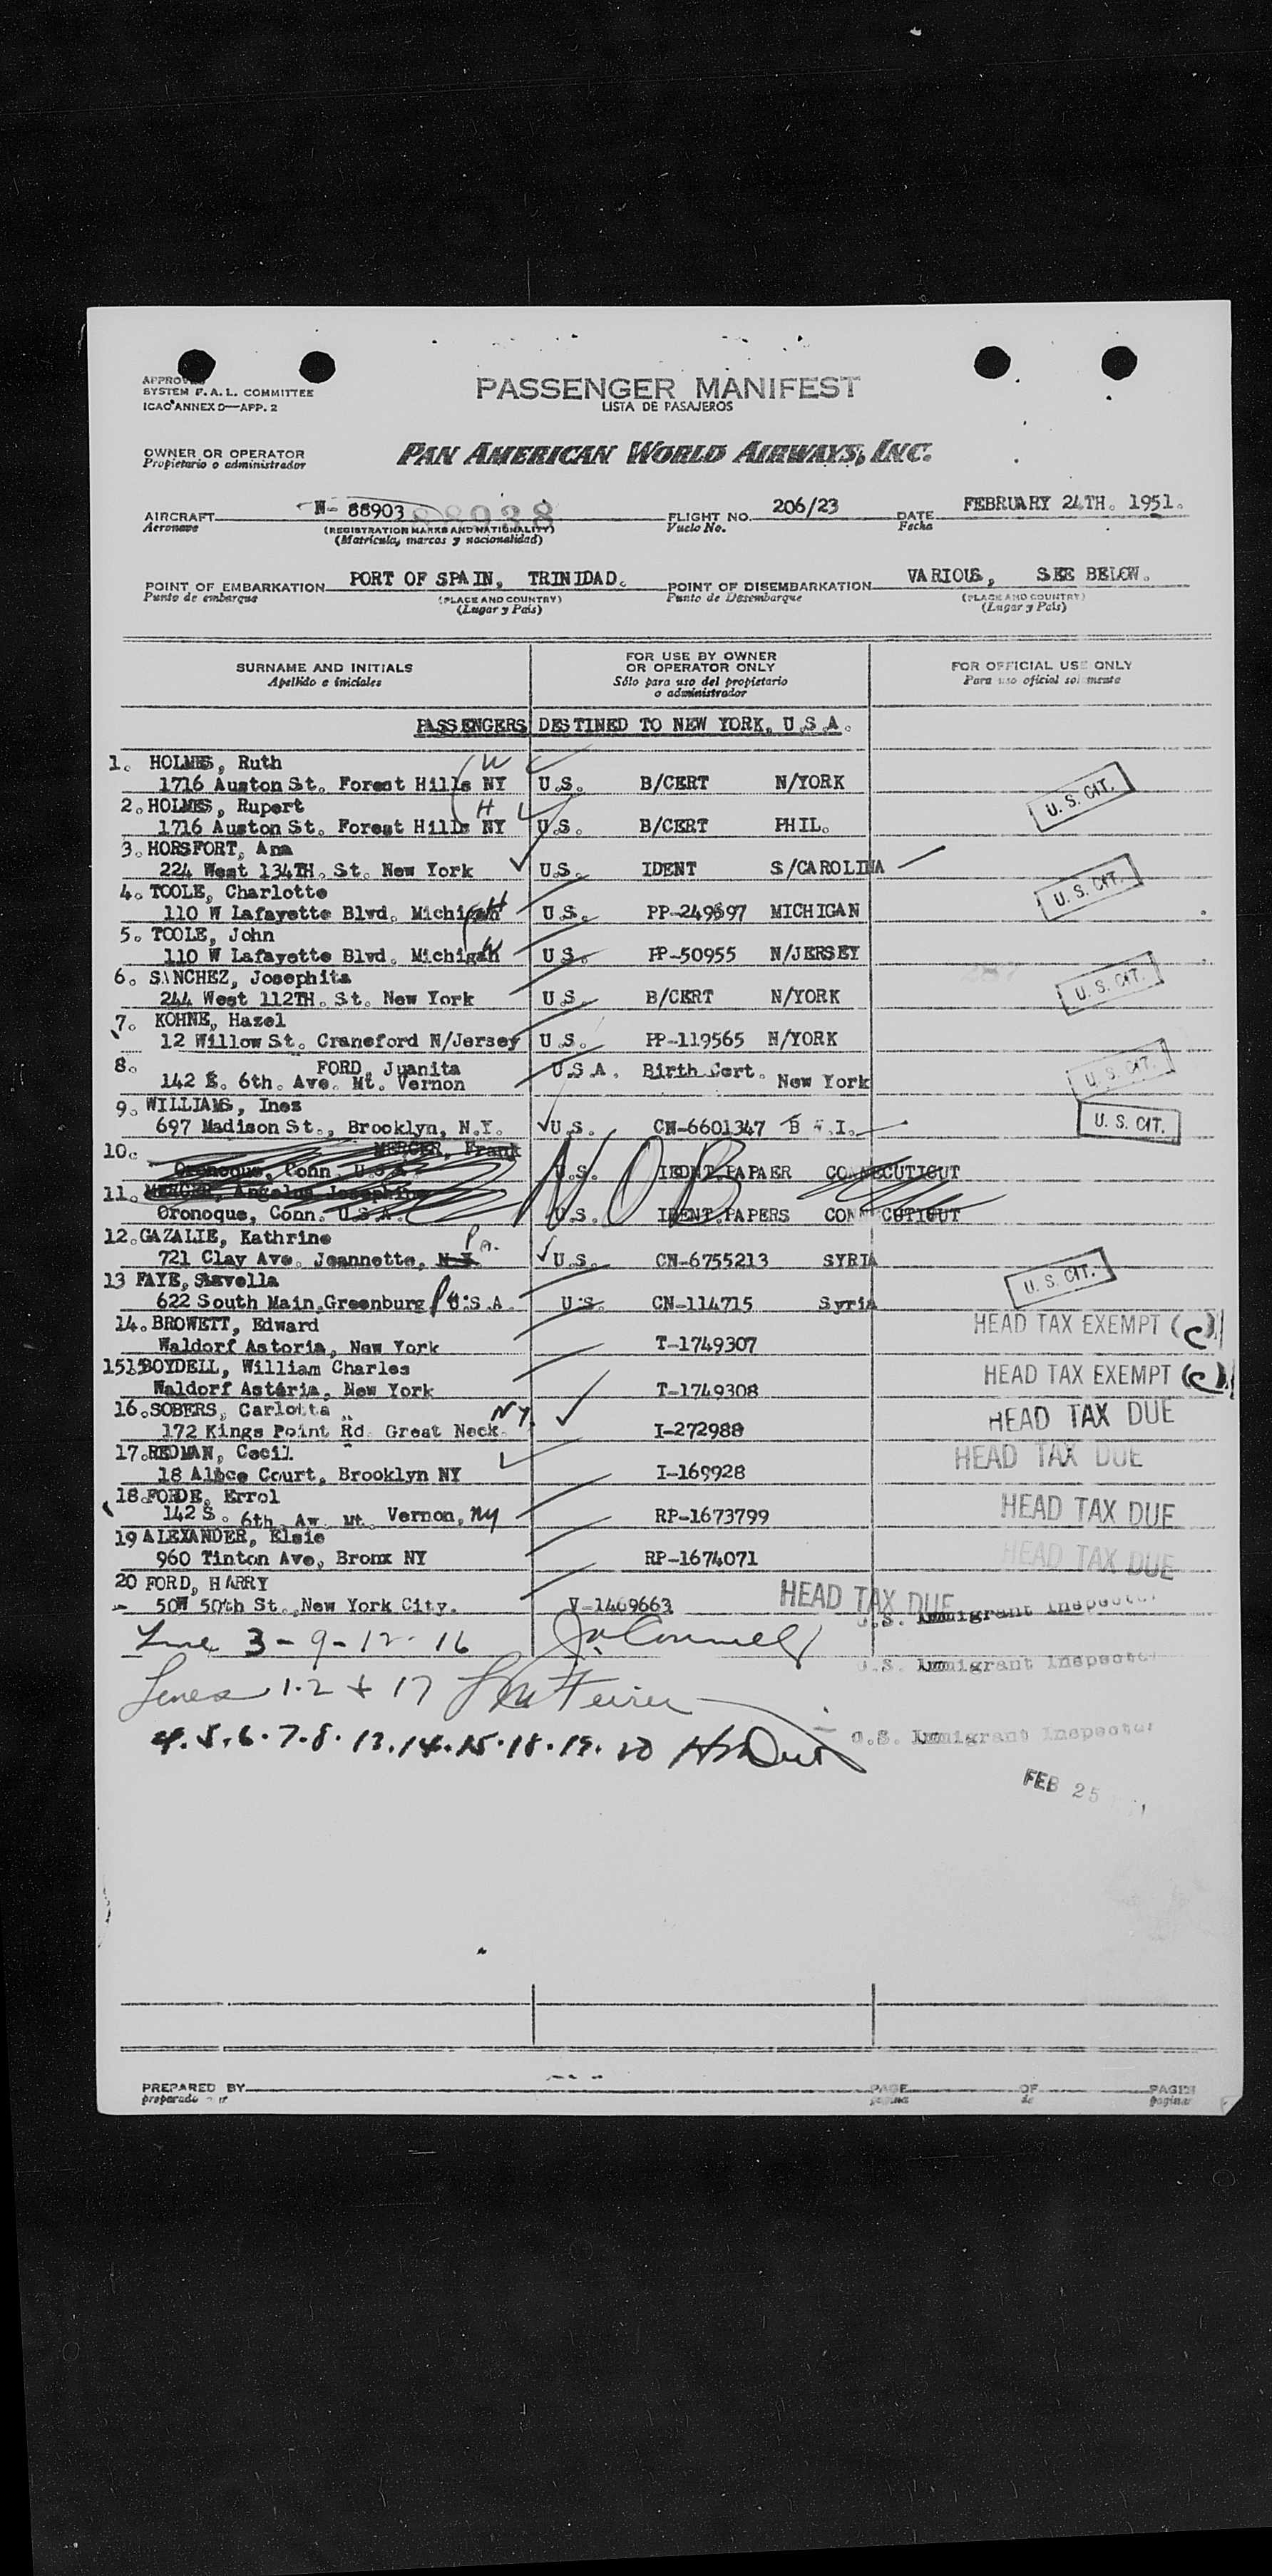 APPROVED
SYSTEM F.A.L. COMMITTEE
ICAO ANNEX 9—APP. 2
PASSENGER MANIFEST
LISTA DE PASAJEROS
OWNER OR OPERATOR
Propietario o administrador
PAN AMERICAN WORLD AIRWAYS, INC.
AIRCRAFT N- 88903 88938 FLIGHT NO. 206/23 DATE FEBRUARY 24TH. 1951.
Aeronave (REGISTRATION MARKS AND NATIONALITY) Vuelo No. Fecha
(Matrícula, marcos y nacionalidad)
POINT OF EMBARKATION PORT OF SPAIN, TRINIDAD. POINT OF DISEMBARKATION VARIOUS, SEE BELOW.
Punto de embarque (PLACE AND COUNTRY) Punto de Desembarque (PLACE AND COUNTRY)
(Lugar y País) (Lugar y País)
SURNAME AND INITIALS FOR USE BY OWNER OR OPERATOR ONLY FOR OFFICIAL USE ONLY
Apellido e iniciales Sólo para uso del propietario o administrador Para uso oficial solamente
PASSENGERS DESTINED TO NEW YORK, U.S.A.
1. HOLMES, Ruth W
1716 Auston St. Forest Hills NY U.S. B/CERT N/YORK
2. HOLMES, Rupert H U.S. CIT.
1716 Auston St. Forest Hills NY U.S. B/CERT PHIL.
3. HORSFORT, Ana
224 West 134TH. St. New York U.S. IDENT S/CAROLINA
4. TOOLE, Charlotte H U.S. CIT.
110 W Lafayette Blvd. Michigan U.S. PP-249597 MICHIGAN
5. TOOLE, John W
110 W Lafayette Blvd. Michigan U.S. PP-50955 N/JERSEY
6. SANCHEZ, Josephita U.S. CIT.
244 West 112TH. St. New York U.S. B/CERT N/YORK
7. KOHNE, Hazel
12 Willow St. Craneford N/Jersey U.S. PP-119565 N/YORK
8. FORD, Juanita U.S. CIT.
142 E. 6th. Ave. Mt. Vernon U.S.A. Birth Cert. New York
9. WILLIAMS, Ines
697 Madison St., Brooklyn, N.Y. U.S. CN-6601347 B W.I. U.S. CIT.
10. MERCER, Frank
Oronoque, Conn U.S.A. U.S. IEDNT.PAPAER CONNECUTICUT
NOB
11. MERCER, Angelus Josephine
Oronoque, Conn. U.S.A. U.S. IDENT.PAPERS CONNECUTICUT
12. GAZALIE, Kathrine Pa.
721 Clay Ave. Jeannette, U.S. CN-6755213 SYRIA
13 FAYE, Savella U.S. CIT.
622 South Main, Greenburg Pa. U.S.A. U.S. CN-114715 Syria
14. BROWETT, Edward HEAD TAX EXEMPT (C)
Waldorf Astoria, New York T-1749307
15 BOYDELL, William Charles HEAD TAX EXEMPT (C)
Waldorf Astoria, New York T-1749308
16. SOBERS, Carlotta NY. HEAD TAX DUE
172 Kings Point Rd Great Neck. I-272988
17. REDMAN, Cecil HEAD TAX DUE
18 Alice Court, Brooklyn NY I-169928
18. FORDE, Errol HEAD TAX DUE
142 S. 6th. Av. Mt. Vernon, NY RP-1673799
19 ALEXANDER, Elsie HEAD TAX DUE
960 Tinton Ave, Bronx NY RP-1674071
20 FORD, HARRY HEAD TAX DUE
50W 50th St., New York City. V-1469663 U.S. Immigrant Inspector
Line 3-9-12-16
U.S. Immigrant Inspector
Lines 1-2 + 17
4.5.6.7.8.13.14.15.18.19.20 U.S. Immigrant Inspector
FEB 25
PREPARED BY PAGE OF PAGES
preparado por pagina de paginas